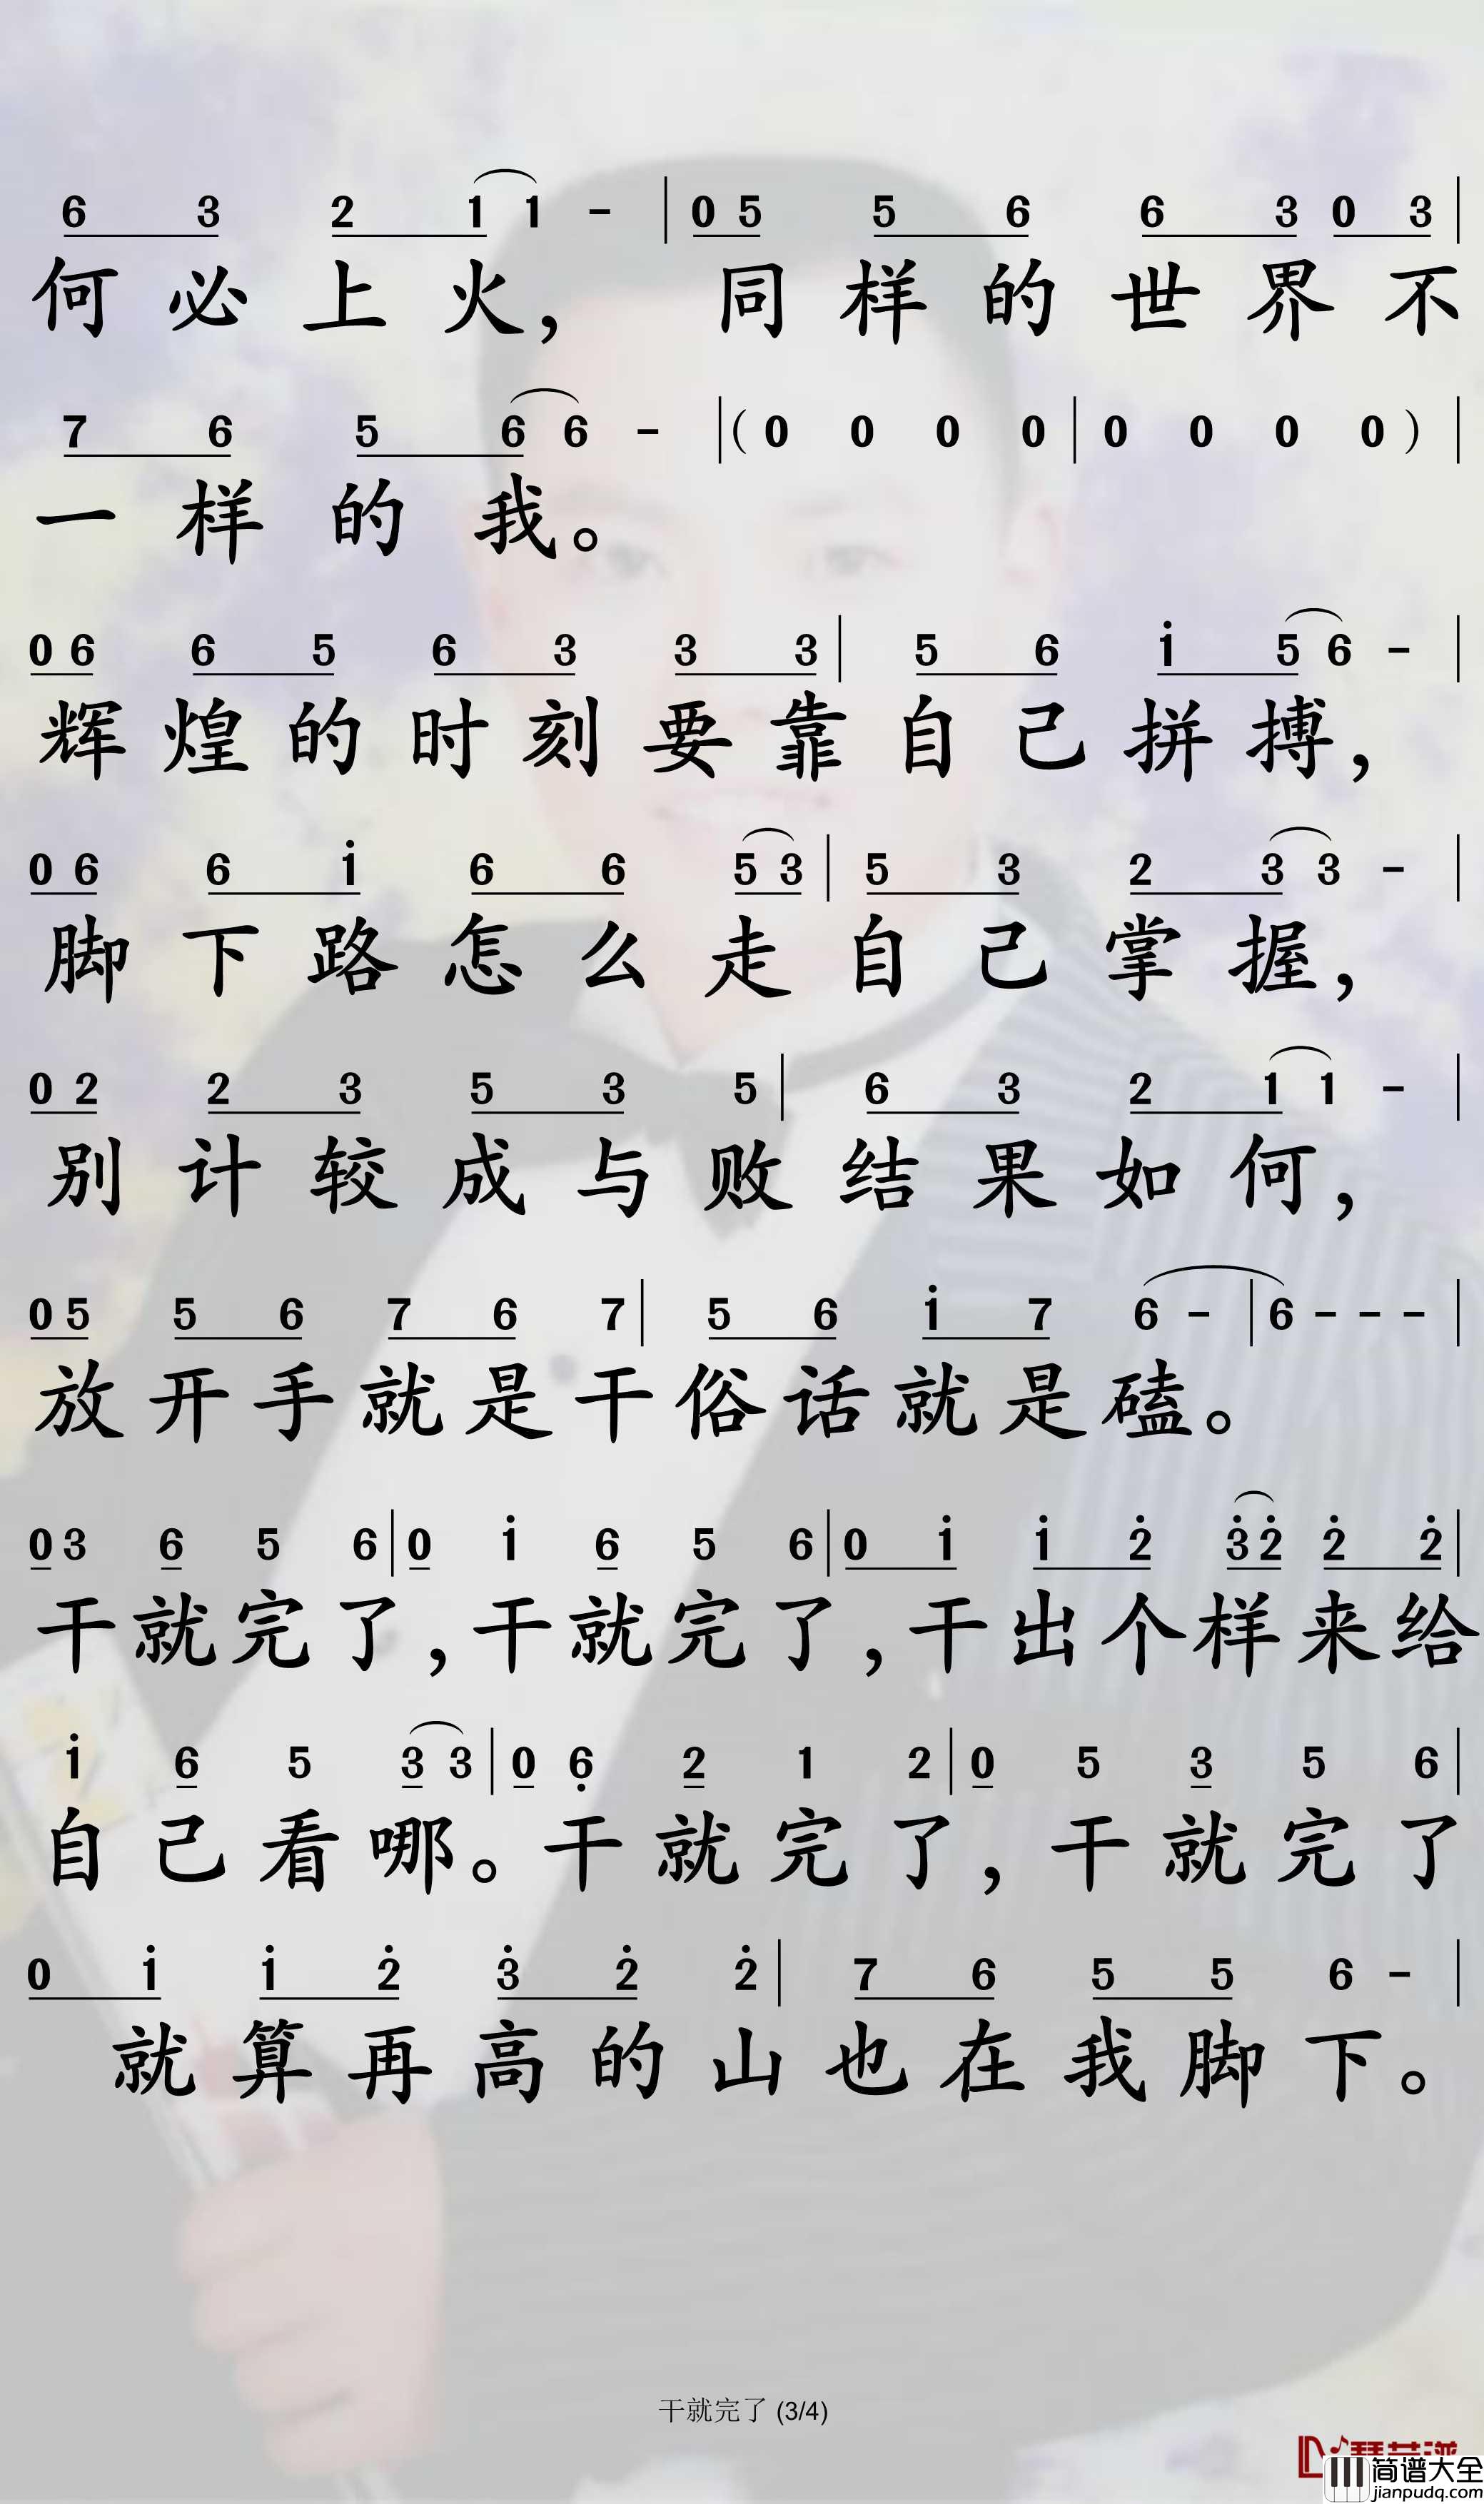 6 3 2 1 1 - | 0 5 5 6 6 3 0 3 |
何必上火，同样的世界不
7 6 5 6 6 - |（0 0 0 0 | 0 0 0 0）|
一样的我。
0 6 6 5 6 3 3 3 | 5 6 i 5 6 - |
辉煌的时刻要靠自己拼搏，
0 6 6 i 6 6 5 3 | 5 3 2 3 3 - |
脚下路怎么走自己掌握，
0 2 2 3 5 3 5 | 6 3 2 1 1 - |
别计较成与败结果如何，
0 5 5 6 7 6 7 | 5 6 i 7 6 - | 6 - - - |
放开手就是干俗话就是磕。
0 3 6 5 6 | 0 i 6 5 6 | 0 i i 2̇ 3̇ 2̇ 2̇ 2̇ |
干就完了，干就完了，干出个样来给
i 6 5 3 3 | 0 6̣ 2 1 2 | 0 5 3 5 6 |
自己看哪。干就完了，干就完了
0 i i 2̇ 3̇ 2̇ 2̇ | 7 6 5 5 6 - |
就算再高的山也在我脚下。
干就完了 (3/4)
简谱大全
jianpudq.com